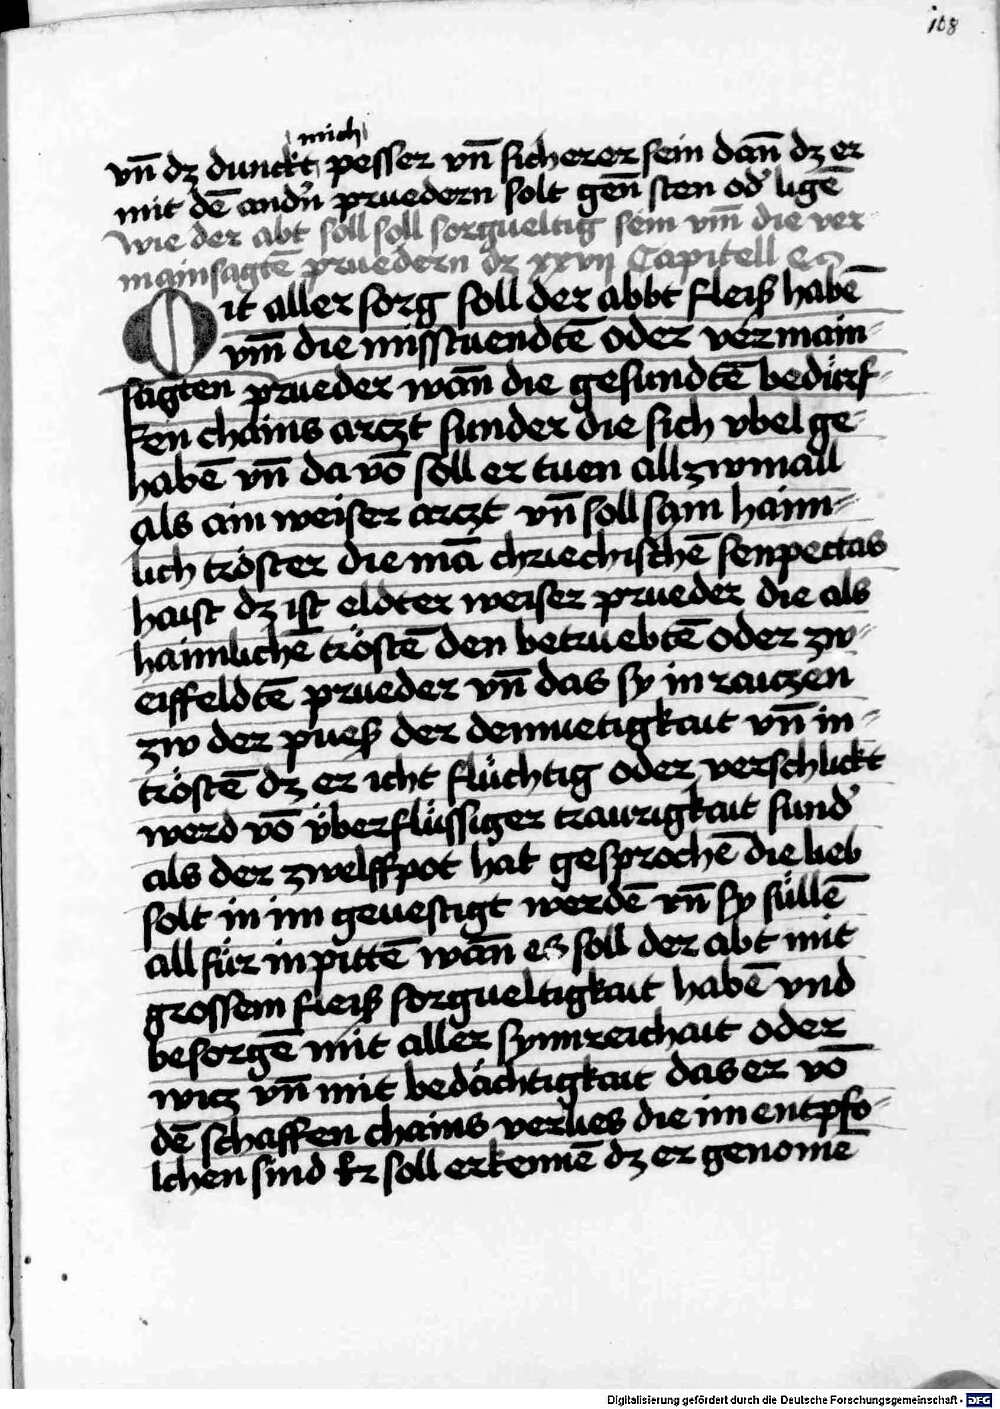 108
mich
vn̄ dz dunckt pesser vn̄ sicherer sein dan̄ dz er
mit dē andn̄ pruedern solt gen̄ sten od' ligē
Wie der abt soll soll sorgueltig sein vm̄ die ver-
mainsagtē pruedern dz xxvij Capitell
Mit aller sorg soll der abbt fleiß habē
vm̄ die misstuendtē oder vermain-
sagten prueder wan̄ die gesundtē bedürf-
fen chains arczt sunder die sich vbel ge-
habē vn̄ da vō soll er tuen all zwmall
als ain weiser arczt vn̄ soll sam haim-
lich tröster die mā chriechischē senpectas
haist dz ist eldter weiser prueder die als
haimlichē tröstē den betruebtē oder zw-
eiffeldtē prueder vn̄ das sy in raiczen
zw der pueß der demuetigkait vn̄ in-
tröstē dz er icht flüchtig oder verschlickt
werd vō überflüssiger traurigkait sund'
als der zwelffpot hat gesprochē die lieb
solt in im geuestigt werdē vn̄ sy süllē
all für in pittē wan̄ es soll der abt mit
grossem fleiß sorgueltigkait habē vnd
besorgē mit aller synnreichait oder
wicz vn̄ mit bedächtigkait das er vō
dē schaffen chains verlies die im entpfo-
lchen sind Er soll erkennē dz er genomē
Digitalisierung gefördert durch die Deutsche Forschungsgemeinschaft - DFG